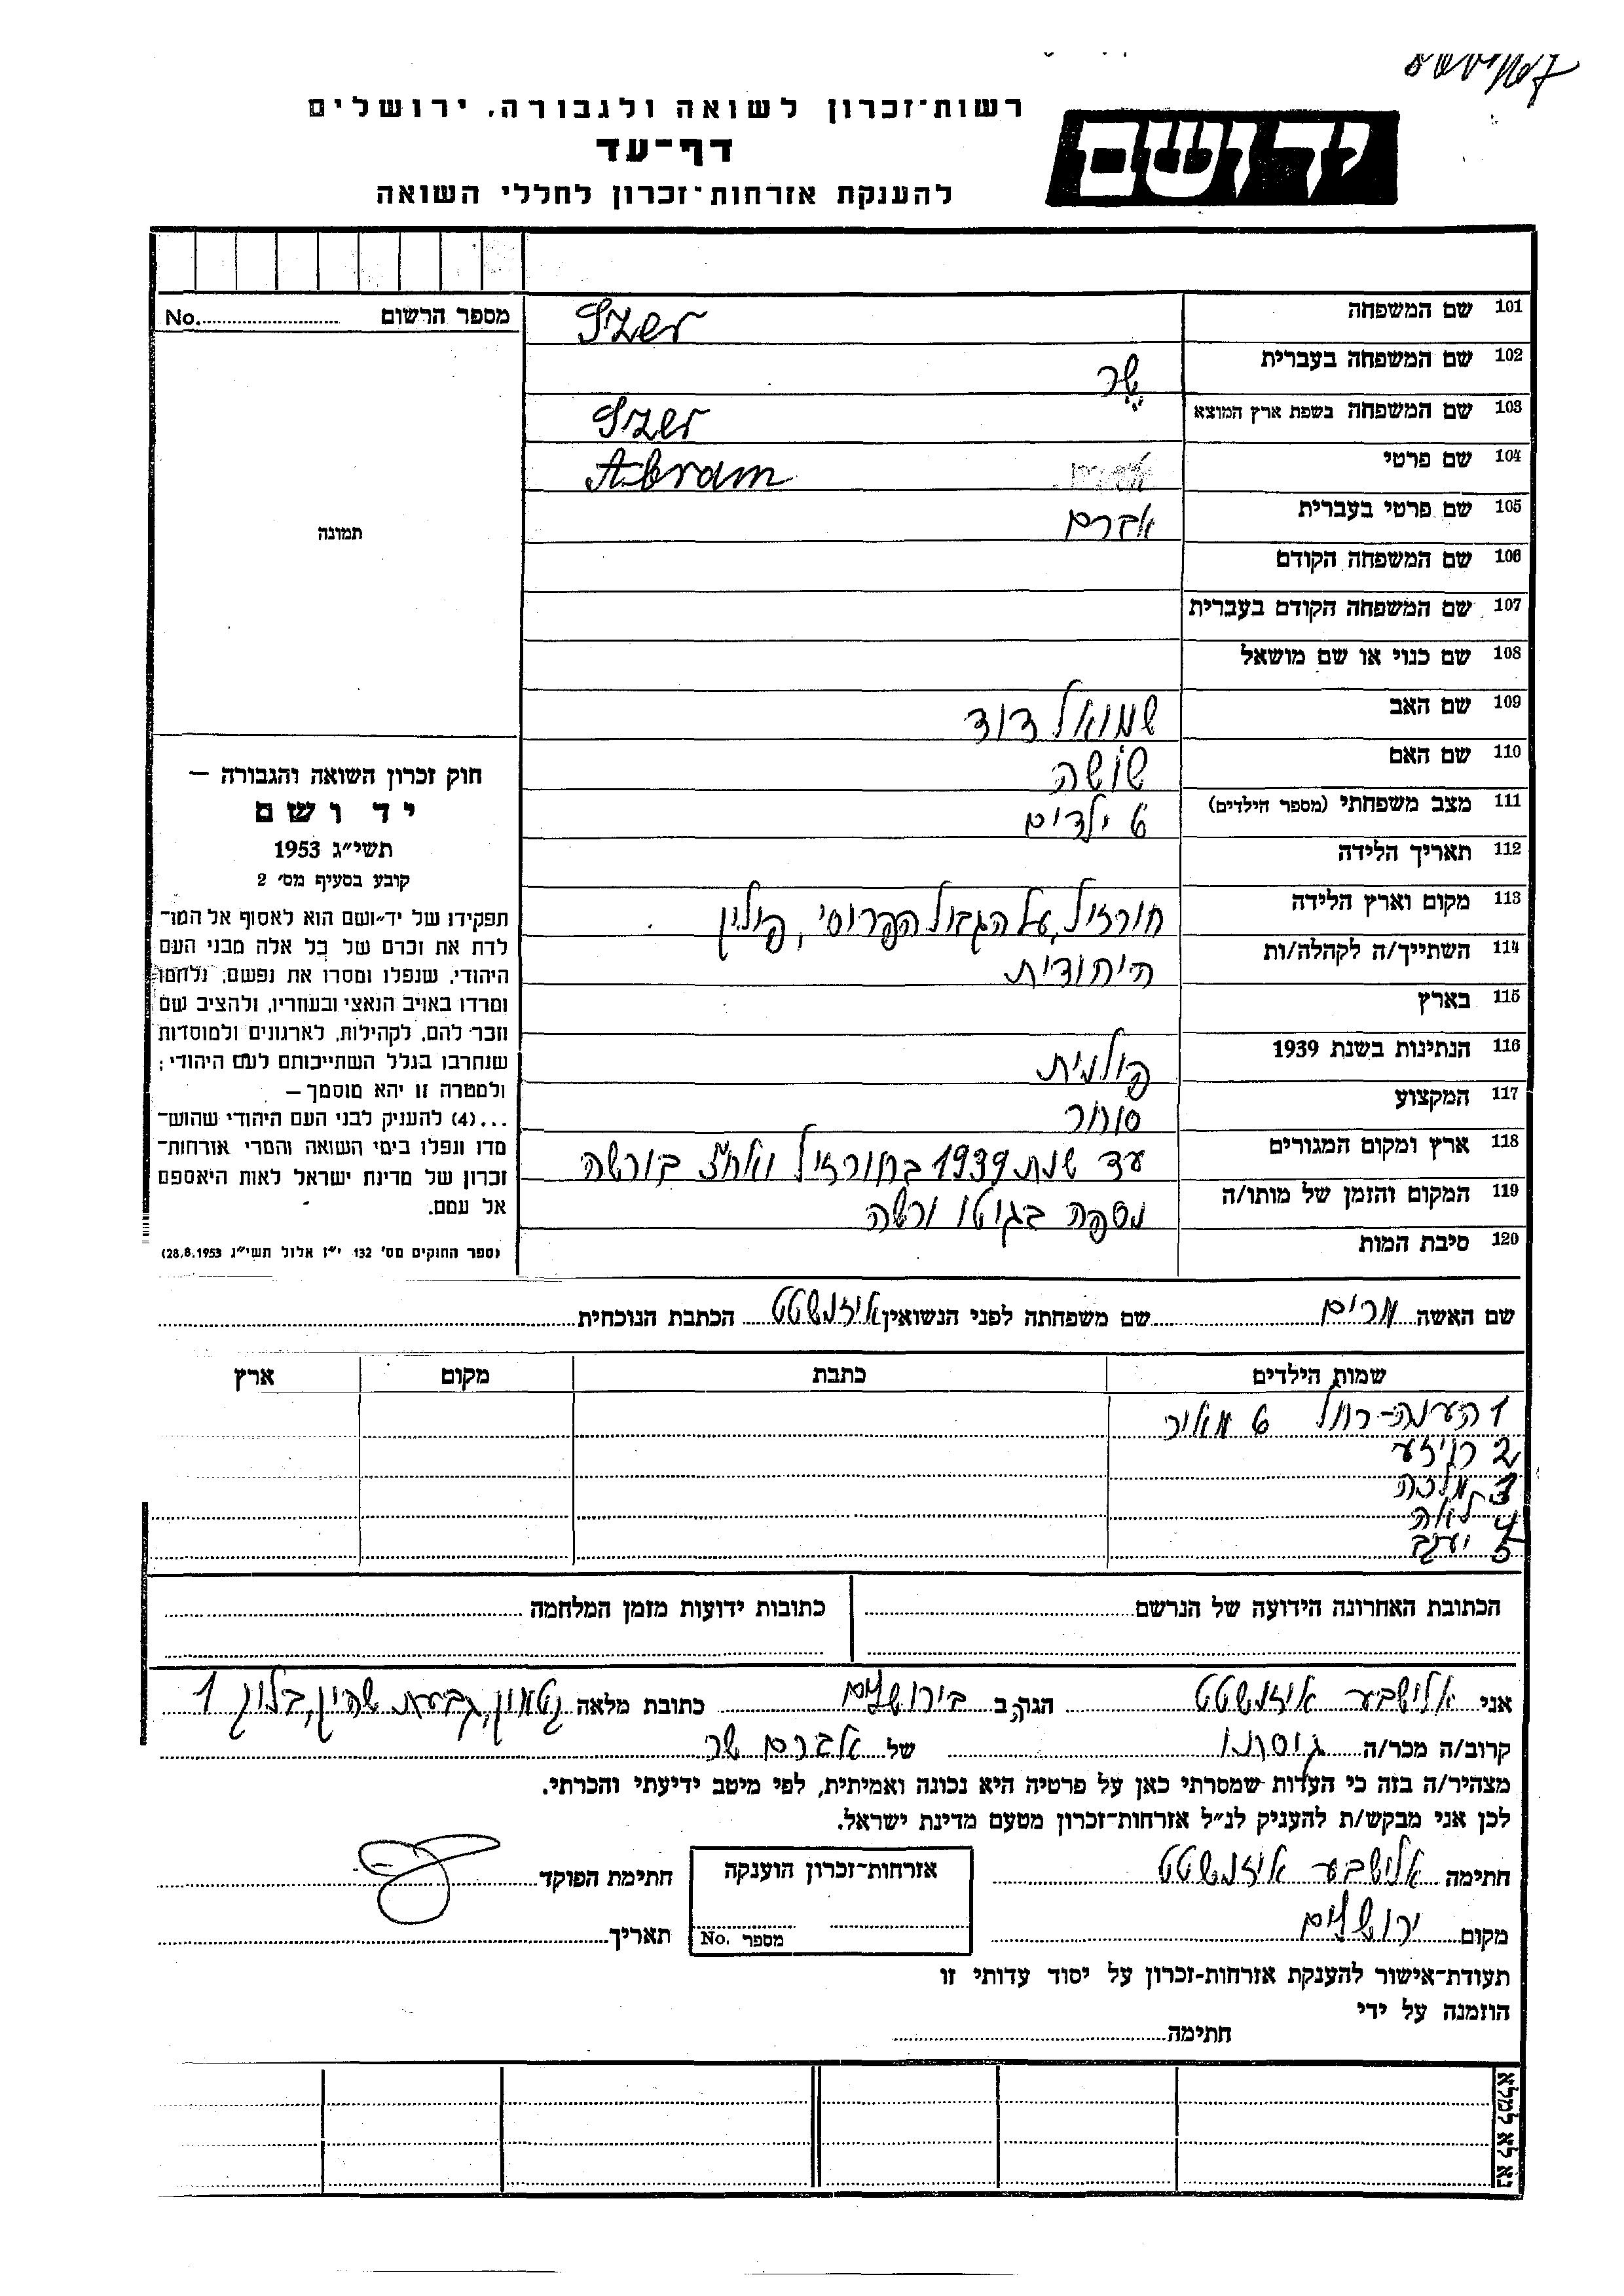 רשות־זכרון לשואה ולגבורה, ירושלים
דף־עד
להענקת אזרחות־זכרון לחללי השואה
יד ושם
מספר הרשום No.
תמונה
101 שם המשפחה Szer
102 שם המשפחה בעברית שר
103 שם המשפחה בשפת ארץ המוצא Szer
104 שם פרטי Abram
105 שם פרטי בעברית אברם
106 שם המשפחה הקודם
107 שם המשפחה הקודם בעברית
108 שם כנוי או שם מושאל
109 שם האב שמואל דוד
110 שם האם שושה
111 מצב משפחתי (מספר הילדים) 6 ילדים
112 תאריך הלידה
113 מקום וארץ הלידה חורזיל, על הגבול הפרוסי, פולין
114 השתייך/ה לקהלה/ות היהודית
115 בארץ
116 הנתינות בשנת 1939 פולנית
117 המקצוע סוחר
118 ארץ ומקום המגורים עד שנת 1939 בחורזיל ואח"צ בורשה
119 המקום והזמן של מותו/ה נספה בגיטו ורשה
120 סיבת המות
חוק זכרון השואה והגבורה —
יד ושם
תשי״ג 1953
קובע בסעיף מס׳ 2
תפקידו של יד־ושם הוא לאסוף אל המו־
לדת את זכרם של כל אלה מבני העם
היהודי, שנפלו ומסרו את נפשם, נלחמו
ומרדו באויב הנאצי ובעוזריו, ולהציב שם
וזכר להם, לקהילות, לארגונים ולמוסדות
שנחרבו בגלל השתייכותם לעם היהודי;
ולמטרה זו יהא מוסמך —
...(4) להעניק לבני העם היהודי שהוש־
מדו ונפלו בימי השואה והמרי אזרחות־
זכרון של מדינת ישראל לאות היאספם
אל עמם.
(ספר החוקים מס׳ 132 י״ז אלול תשי״ג 28.8.1953)
שם האשה מרים שם משפחתה לפני הנשואין איזנשטט הכתבת הנוכחית
שמות הילדים כתבת מקום ארץ
1 העניה-רחל 6 מאיר
2 רויזע
3 מלכה
4 לאה
5 יעקב
הכתובת האחרונה הידועה של הנרשם כתובות ידועות מזמן המלחמה
אני אלישבע איזנשטט הגר/ה ב בירושלים כתובת מלאה קטמון, גבעת שהין, בלוק 1
קרוב/ה מכר/ה גיסתו של אברם שר
מצהיר/ה בזה כי העדות שמסרתי כאן על פרטיה היא נכונה ואמיתית, לפי מיטב ידיעתי והכרתי.
לכן אני מבקש/ת להעניק לנ״ל אזרחות־זכרון מטעם מדינת ישראל.
חתימה אלישבע איזנשטט אזרחות־זכרון הוענקה חתימת הפוקד
מקום ירושלים מספר No. תאריך
תעודת־אישור להענקת אזרחות־זכרון על יסוד עדותי זו
הוזמנה על ידי
חתימה
נא לא למלא